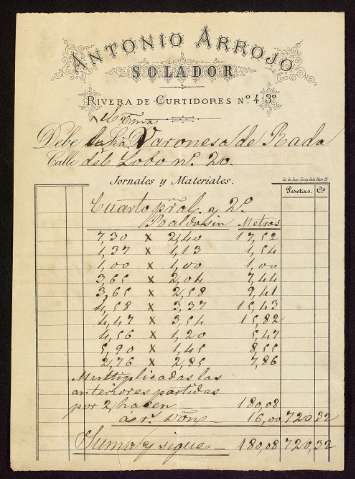 ANTONIO ARROJO
SOLADOR
RIVERA DE CURTIDORES Nº 4, 3º
Debe la Sra. Varonesa de Rada
Calle del Lobo nº 20
Jornales y Materiales.
Pesetas. Cs
Cuarto pral. y 2º
Baldosin Metros
7,30 x 2,40 17,52
1,37 x 1,13 1,54
1,00 x 1,00 1,00
3,65 x 2,04 7,44
3,65 x 2,58 9,41
4,58 x 3,37 15,43
4,47 x 3,54 15,82
4,56 x 1,20 5,47
5,90 x 1,45 8,55
2,76 x 2,85 7,86
Multiplicadas las
anteriores partidas
por 2, hacen 180,08
a rs. von 16,00 720,32
Suma y sigue 180,08 720,32